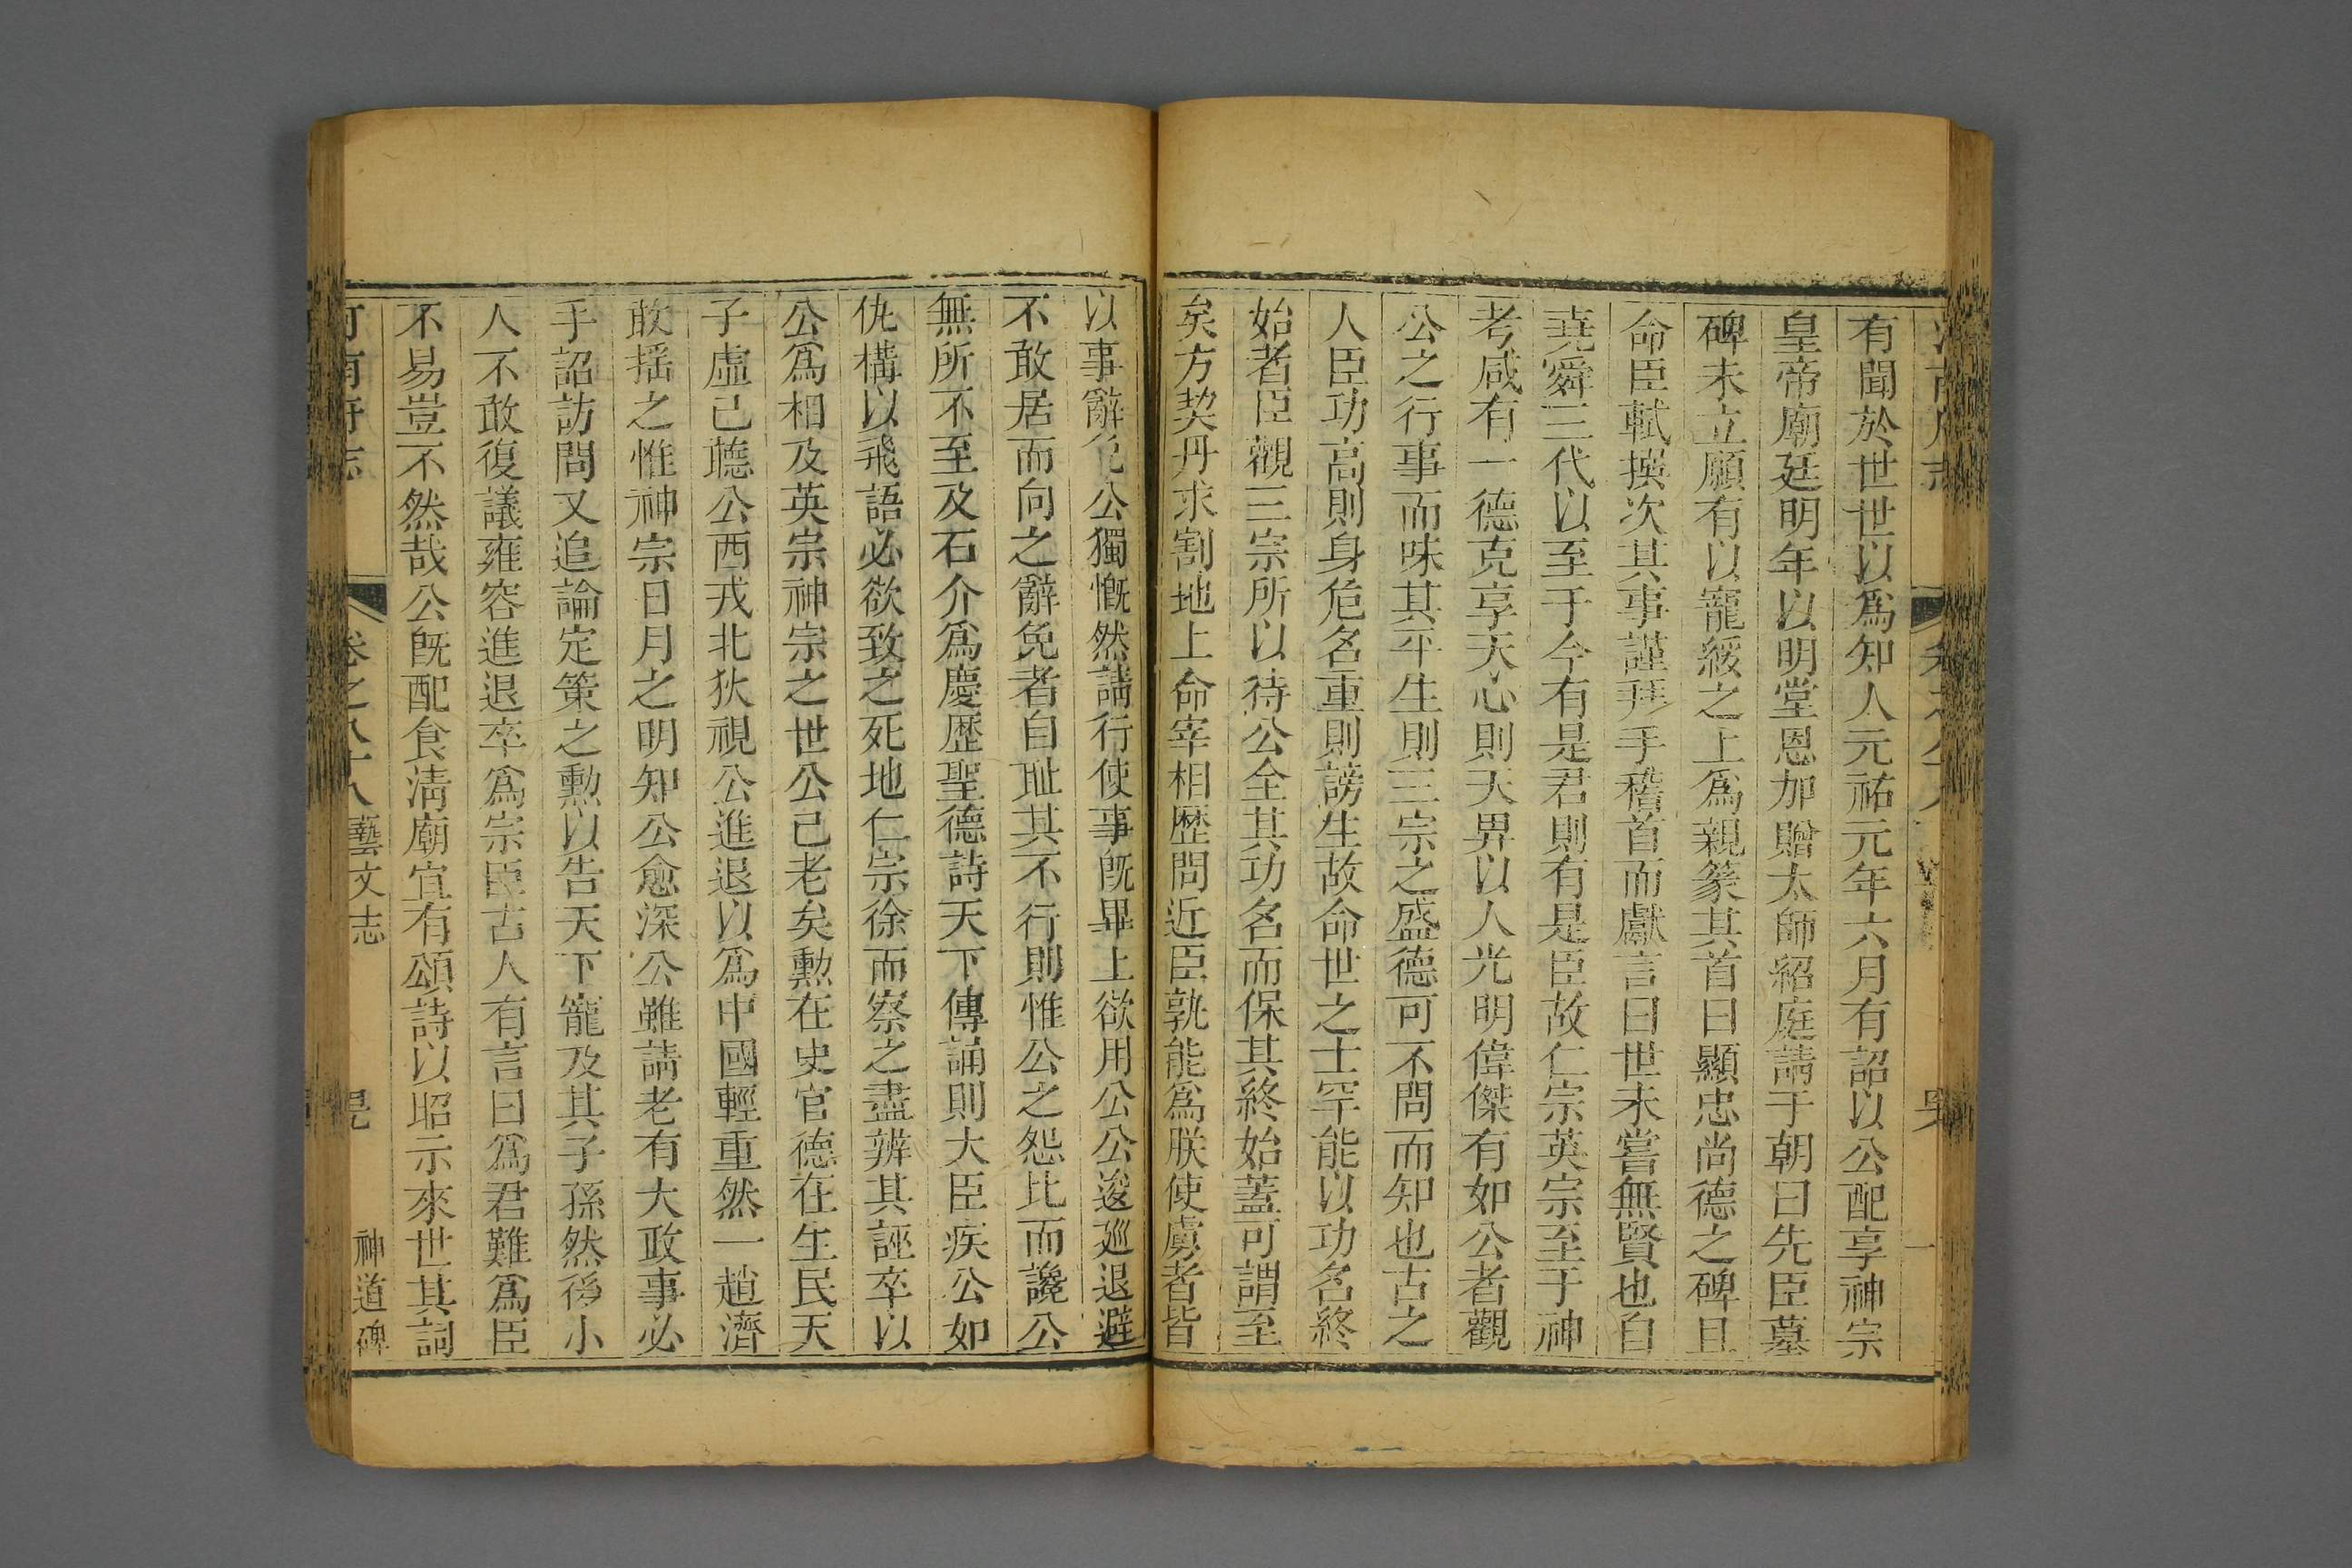 有聞於世世以爲知人元祐元年六月有詔以公配享神宗
皇帝廟廷明年以明堂恩加贈太師紹庭請于朝曰先臣墓
碑未立願有以寵綏之上爲親篆其首曰顯忠尚德之碑且
命臣軾撰次其事謹拜手稽首而獻言曰世未嘗無賢也自
堯舜三代以至于今有是君則有是臣故仁宗英宗至于神
考咸有一德克享天心則天畀以人光明偉傑有如公者觀
公之行事而味其平生則三宗之盛德可不問而知也古之
人臣功高則身危名重則謗生故命世之士罕能以功名終
始者臣觀三宗所以待公全其功名而保其終始蓋可謂至
矣方契丹求割地上命宰相歷問近臣孰能爲朕使虜者皆
以事辭免公獨慨然請行使事旣畢上欲用公公逡廵退避
不敢居而向之辭免者自耻其不行則惟公之怨比而讒公
無所不至及石介爲慶歷聖德詩天下傳誦則大臣疾公如
仇構以飛語必欲致之死地仁宗徐而察之盡辨其誣卒以
公爲相及英宗神宗之世公己老矣勲在史官德在生民天
子虛己聽公西戎北狄視公進退以爲中國輕重然一趙濟
敢搖之惟神宗日月之明知公愈深公雖請老有大政事必
手詔訪問又追論定策之勲以告天下寵及其子孫然後小
人不敢復議雍容進退卒爲宗臣古人有言曰爲君難爲臣
不易豈不然哉公旣配食淸廟宜有頌詩以昭示來世其詞
河南府志 卷之八十八 藝文志 神道碑